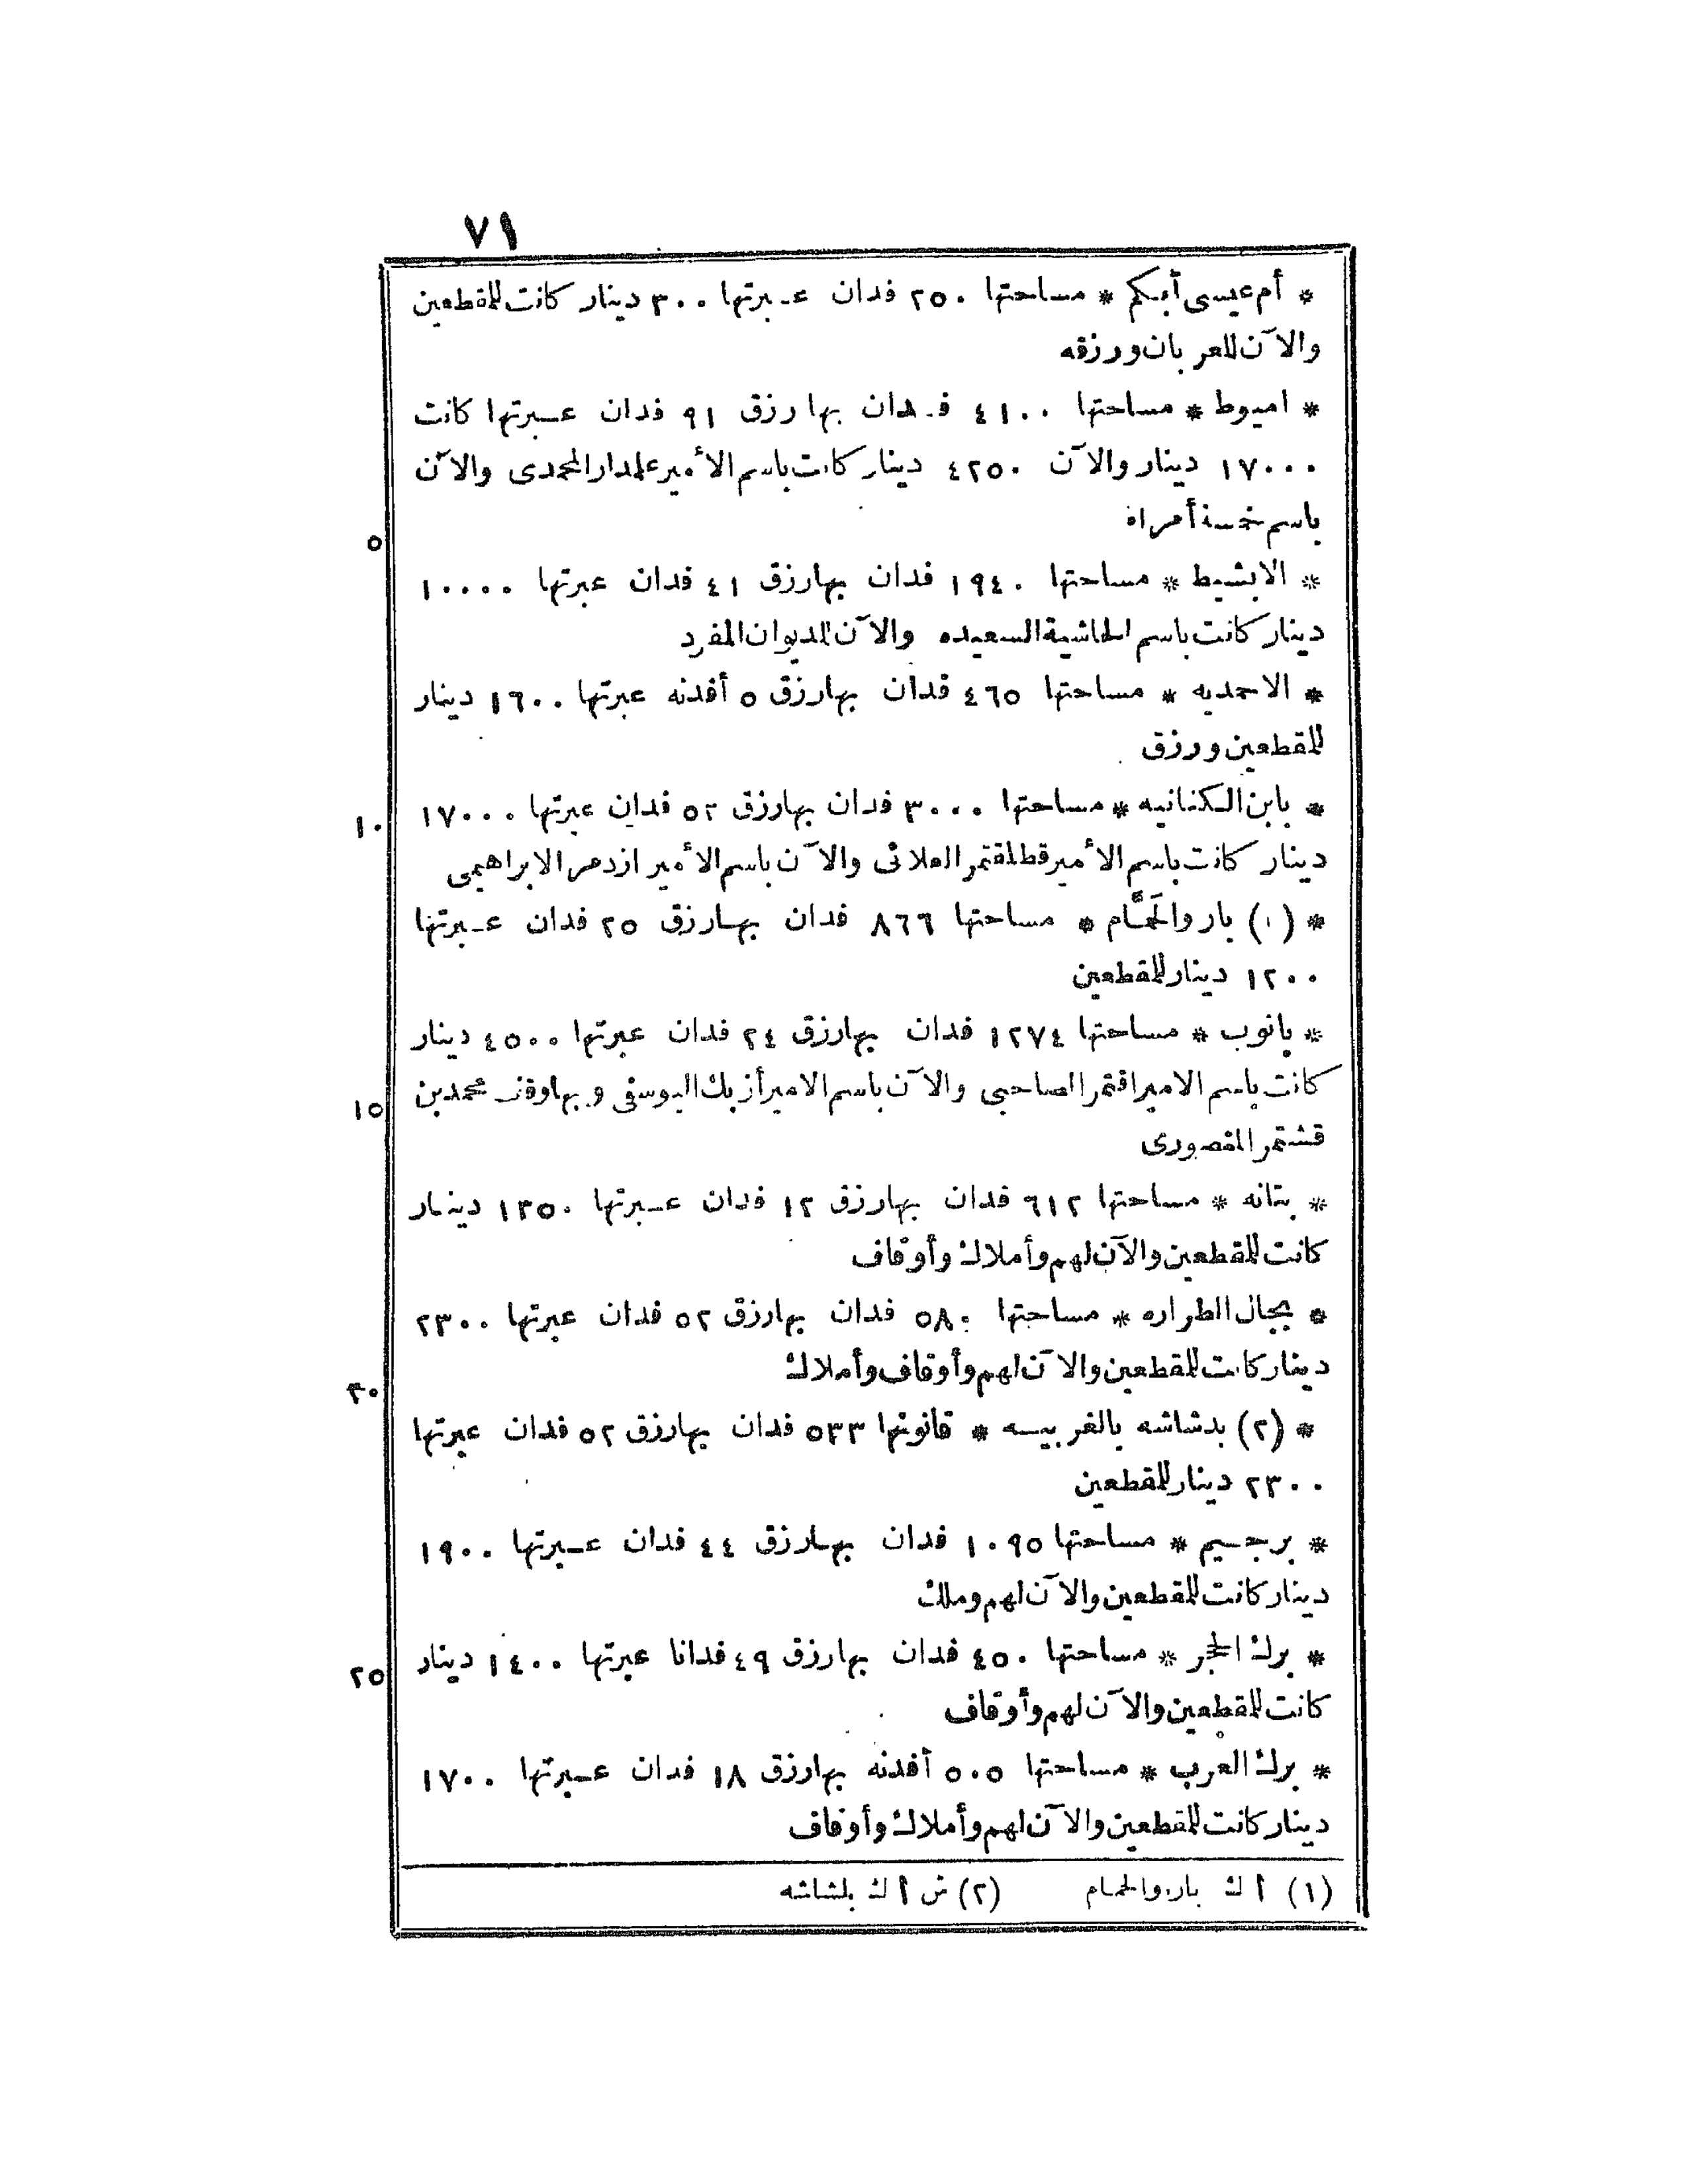 ٧١
* أم عيسى أبكم * مساحتها ٢٥٠ فدان عبرتها ٣٠٠ دينار كانت للمقطعين
والآن للعربان ورزقه
* اميوط * مساحتها ٤١٠٠ فدان بها رزق ٩١ فدان عبرتها كانت
١٧٠٠٠ دينار والآن ٤٢٥٠ دينار كانت باسم الأمير علمدار المحمدى والآن
باسم خمسة أمراء
٥
* الابشيط * مساحتها ١٩٤٠ فدان بها رزق ٤١ فدان عبرتها ١٠٠٠٠
دينار كانت باسم الحاشية السعيده والآن للديوان المفرد
* الاحمديه * مساحتها ٤٦٥ فدان بها رزق ٥ أفدنه عبرتها ١٦٠٠ دينار
للمقطعين ورزق
* بابن الكنانيه * مساحتها ٣٠٠٠ فدان بها رزق ٥٢ فدان عبرتها ١٧٠٠٠
١٠
دينار كانت باسم الأمير قطلقتمر العلائى والآن باسم الأمير ازدمر الابراهيمى
* (١) بار والحَمَّام * مساحتها ٨٦٦ فدان بها رزق ٢٥ فدان عبرتها
١٢٠٠ دينار للمقطعين
* بانوب * مساحتها ١٢٧٤ فدان بها رزق ٢٤ فدان عبرتها ٤٥٠٠ دينار
كانت باسم الامير اقتمر الصاحبى والآن باسم الامير أزبك اليوسفى وبها وقف محمد بن
١٥
قشتمر المنصورى
* بتانه * مساحتها ٦١٢ فدان بها رزق ١٢ فدان عبرتها ١٣٥٠ دينار
كانت للمقطعين والآن لهم وأملاك وأوقاف
* بجال الطراره * مساحتها ٥٨٠ فدان بها رزق ٥٢ فدان عبرتها ٢٣٠٠
دينار كانت للمقطعين والآن لهم وأوقاف وأملاك
٢٠
* (٢) بدشاشه بالغربيسه * قانونها ٥٣٣ فدان بها رزق ٥٢ فدان عبرتها
٢٣٠٠ دينار للمقطعين
* برجيم * مساحتها ١٠٩٥ فدان بها رزق ٤٤ فدان عبرتها ١٩٠٠
دينار كانت للمقطعين والآن لهم وملك
* برك الحجر * مساحتها ٤٥٠ فدان بها رزق ٤٩ فدانا عبرتها ١٤٠٠ دينار
٢٥
كانت للمقطعين والآن لهم وأوقاف
* برك العرب * مساحتها ٥٠٥ أفدنه بها رزق ١٨ فدان عبرتها ١٧٠٠
دينار كانت للمقطعين والآن لهم وأملاك وأوقاف
(١) أ ك بار والحمام (٢) ش أ ك بلشاشه